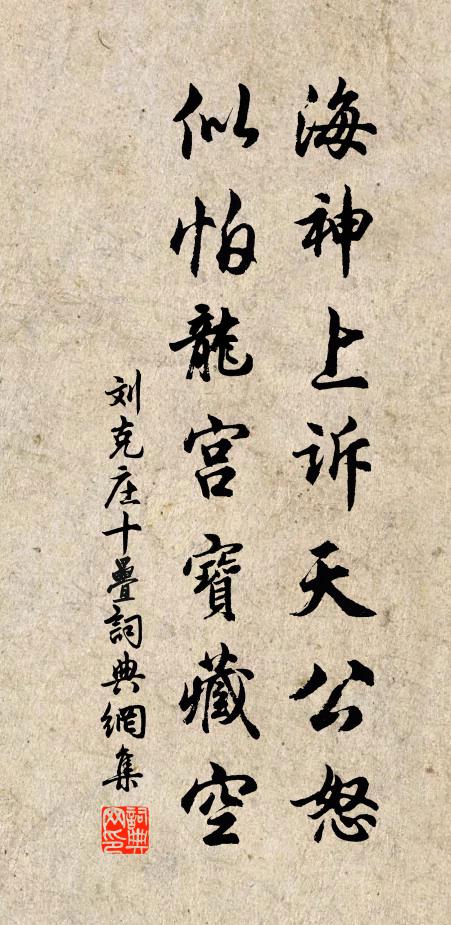 海神上诉天公怒
似怕龍宫寶藏空
刘克庄十疊詞典網集
詞典网印